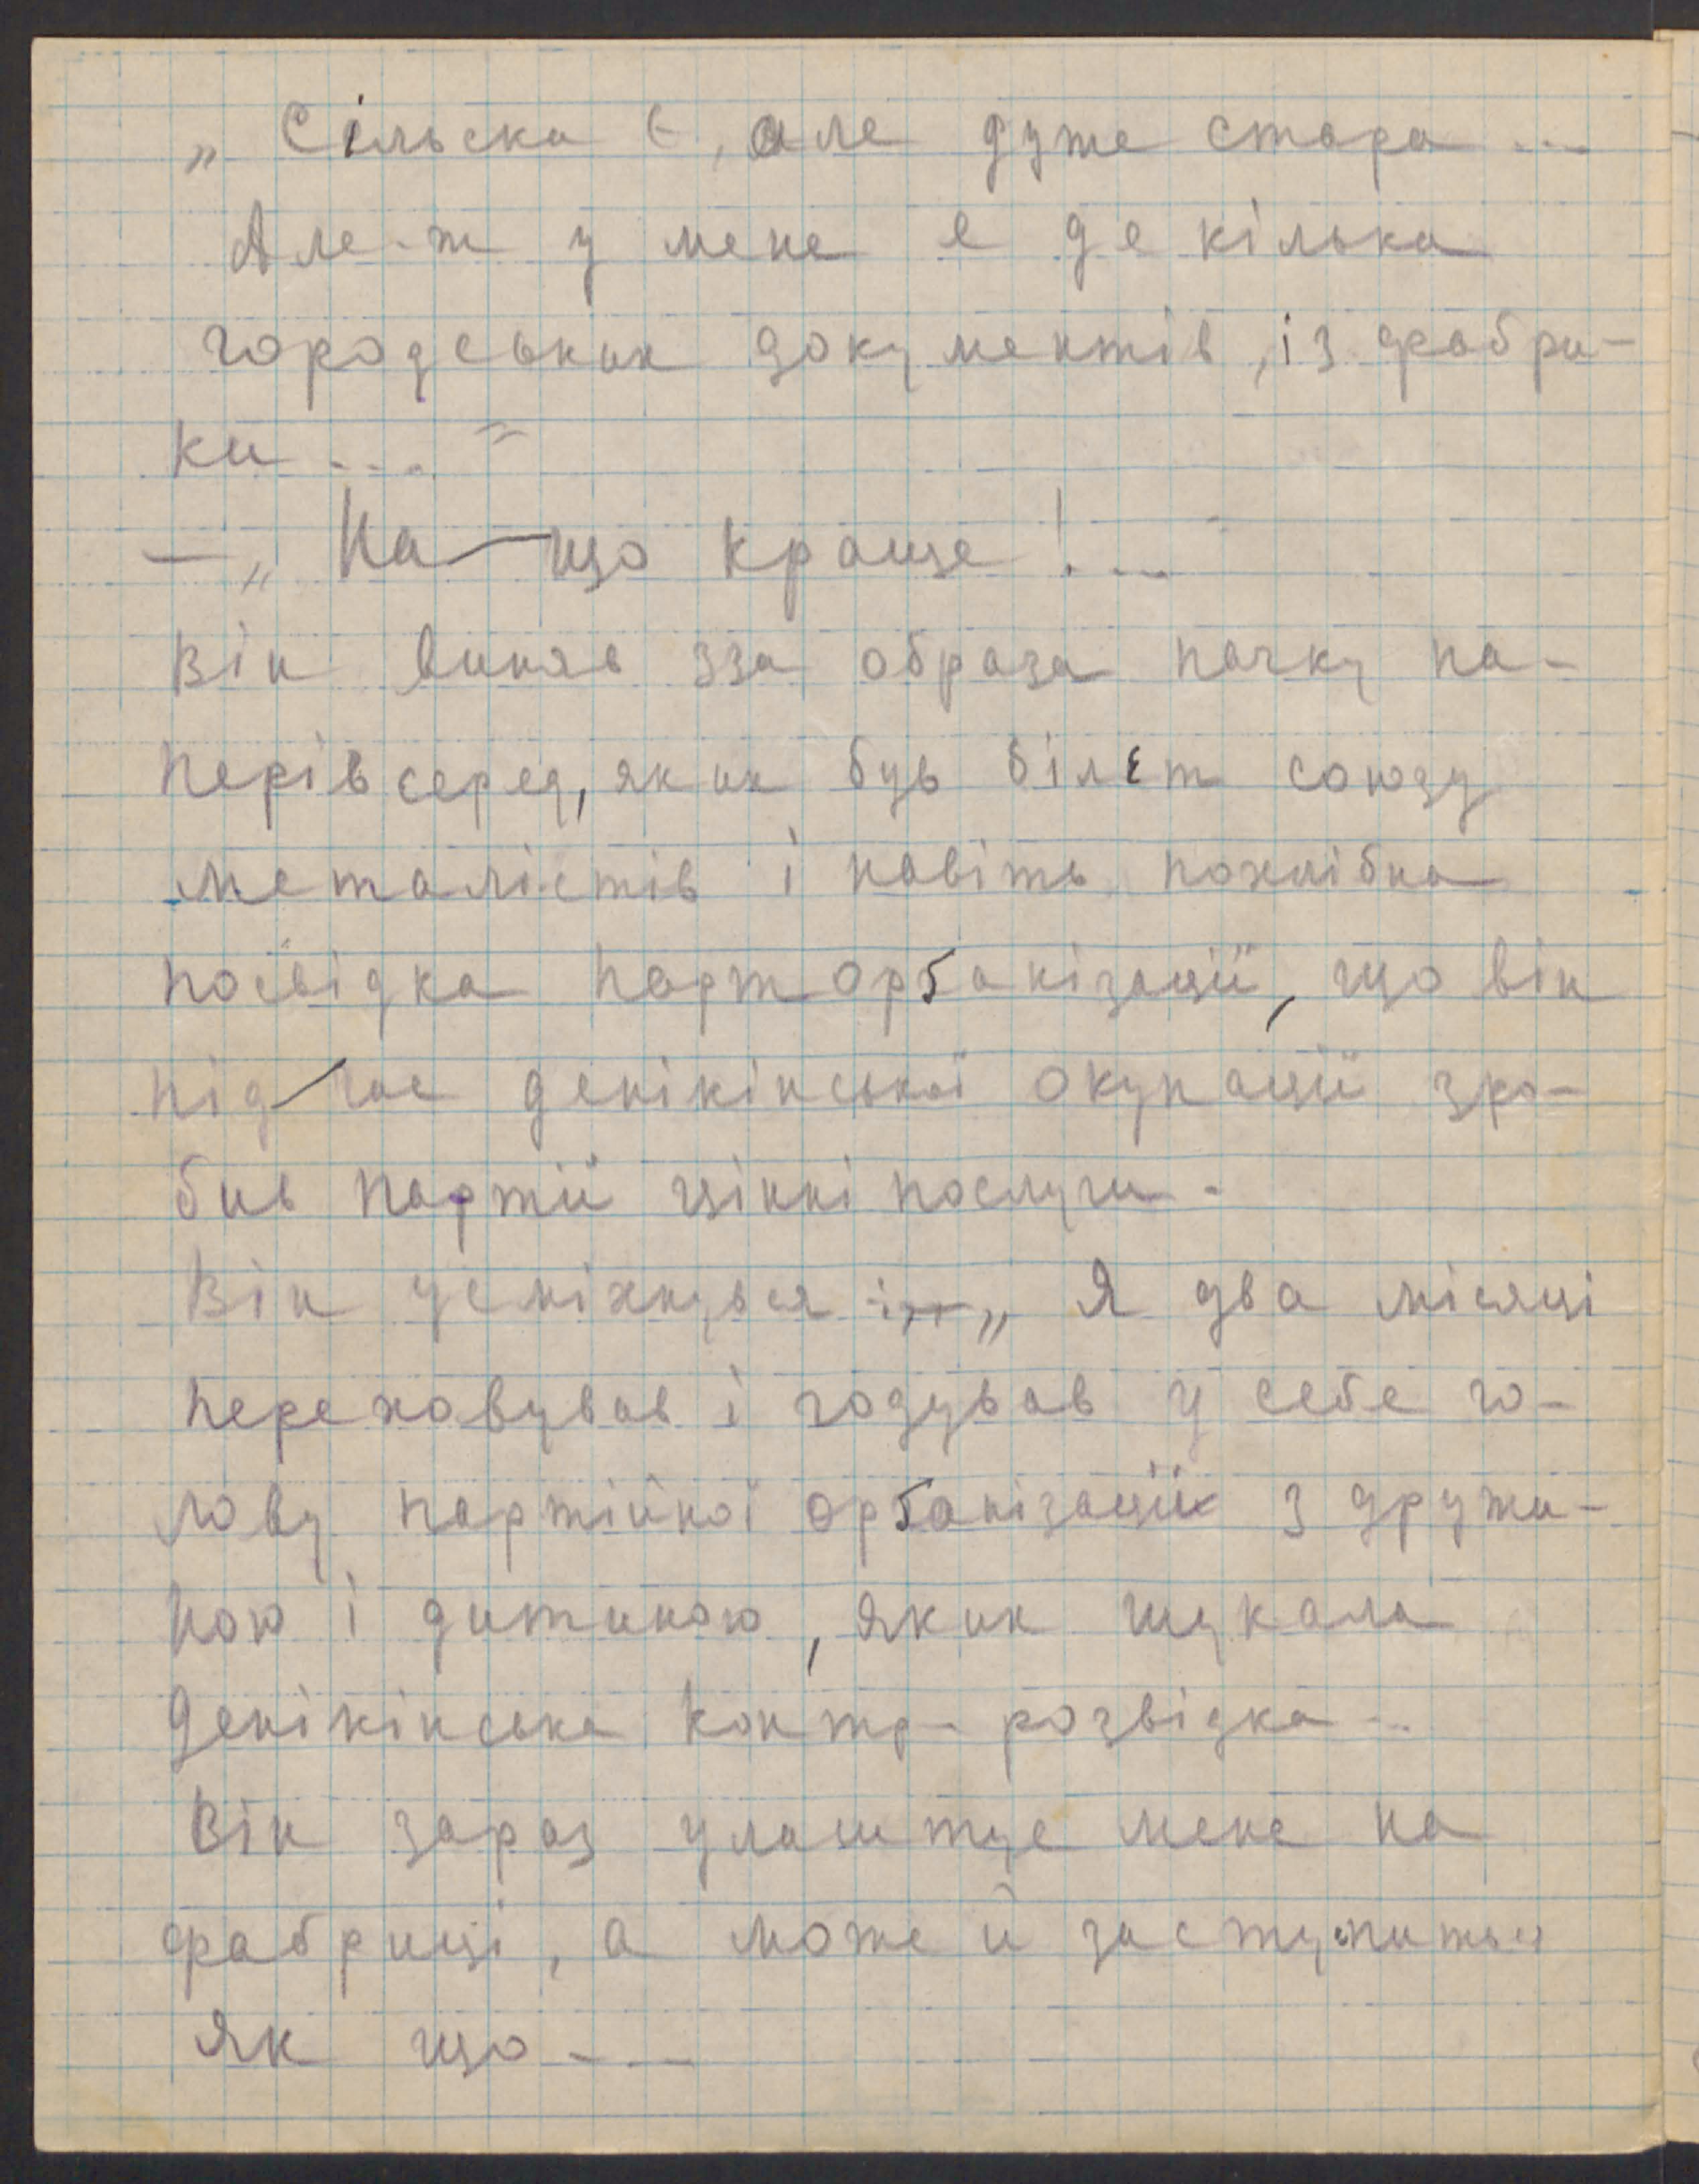 „Сільска Є, але дуже стара ...
Але-ж у мене е де кілька
городських документів, із фабри-
ки ...."
— „На що краще! ...
Він виняв зза образа пачку па-
перів серед, яких був білєт союзу
металістів і навіть похвібна
посвідка парторґанізації, що він
під час денікінської окупації зро-
бив партії цінні послуги.
Він усміхнувся „Я два місяці
переховував і годував у себе го-
лову партійної орґанізації з дружи-
ною і дитиною, яких шукала
Денікінська контр-розвідка ...
Він зараз улаштує мене на
фабриці, а може й заступиться
як що - —